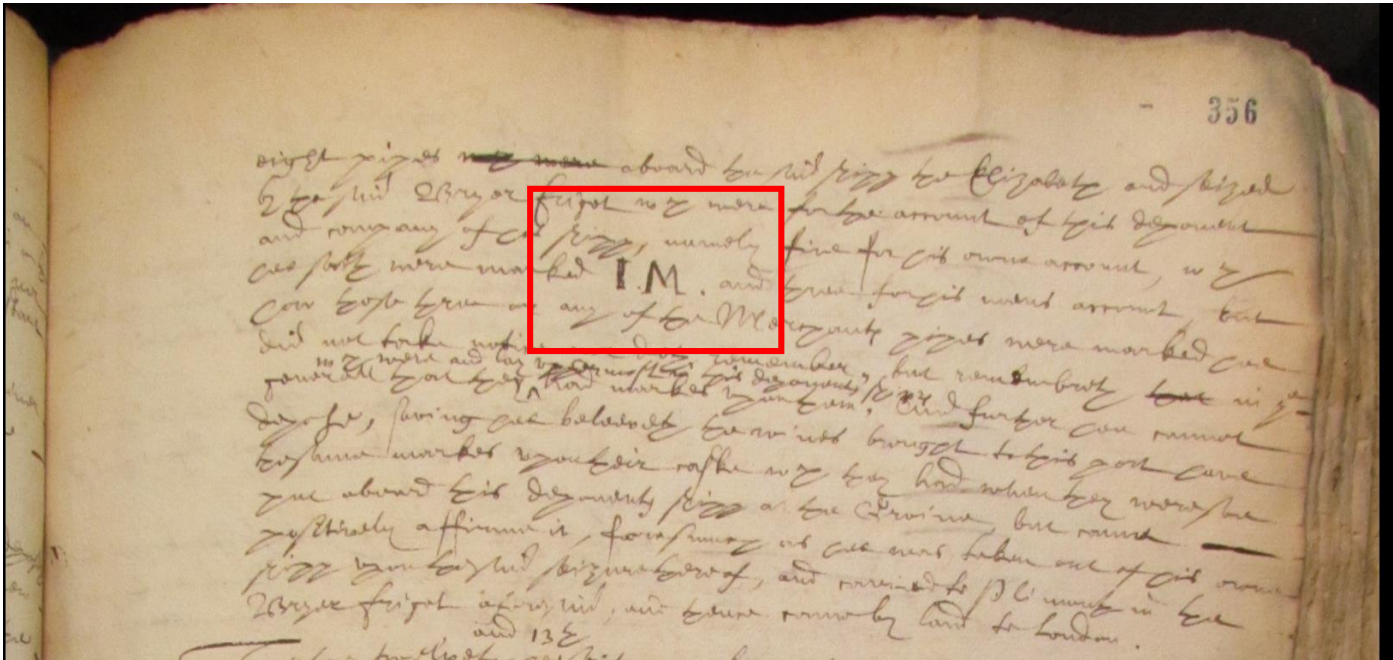 356
eight pipes were aboard the said shipp the Elizabeth and seized
by the said Bryer frigot wch were for the account of this deponent
and company of his shipp, namely five for his owne account, wch
hee saith were marked I.M. and three for his mens account, but
how those three or any of the Merchants pipes were marked hee
did not take notice nor doth remember, but remembreth that in ye
wch were and lay uppermost in this deponents shipp
generall that they had markes upon them. And further hee cannot
depose, saving hee beleeveth the wines brought to this port have
the same markes upon their caske wch they had when they were
put aboard this deponents shipp at the Groine, but cannot
positively affirme it, forasmuch as hee was taken out of his owne
shipp upon the said seizure thereof, and carried to Plimouth in the
Bryer frigot aforesaid, and thence came by land to London.
and 13th